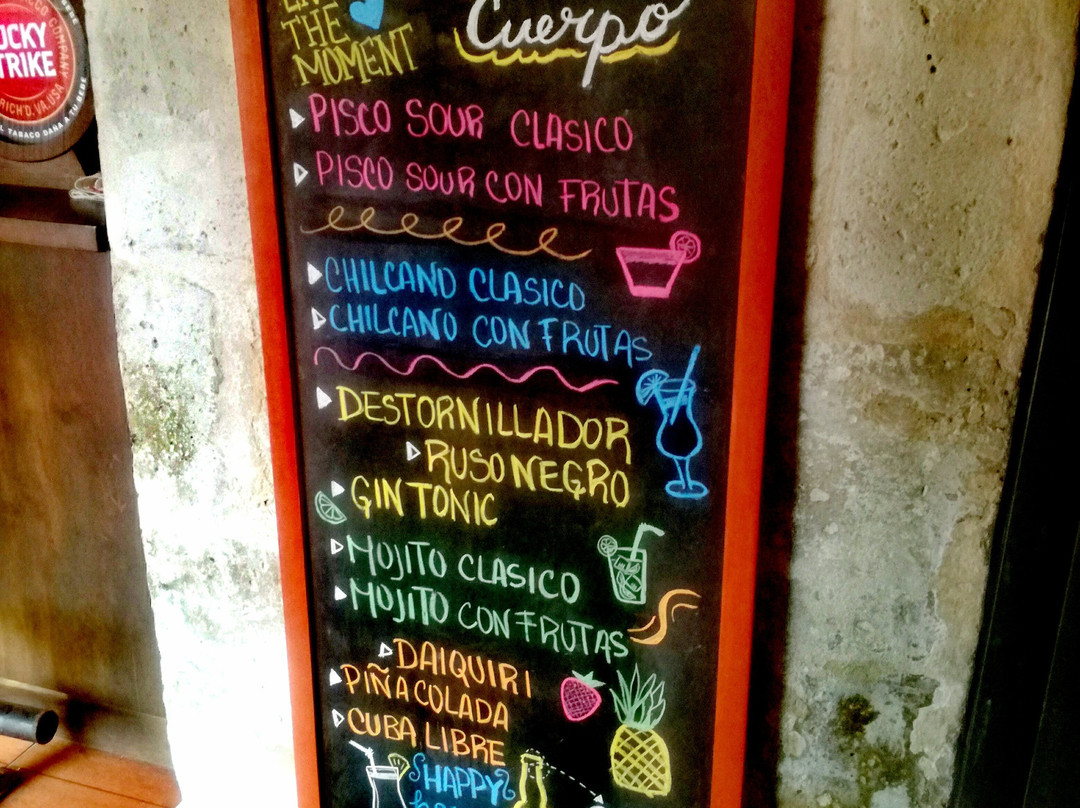 THE
MOMENT
Cuerpo
PISCO SOUR CLASICO
PISCO SOUR CON FRUTAS
CHILCANO CLASICO
CHILCANO CON FRUTAS
DESTORNILLADOR
RUSO NEGRO
GIN TONIC
MOJITO CLASICO
MOJITO CON FRUTAS
DAIQUIRI
PIÑA COLADA
CUBA LIBRE
HAPPY
UCKY
TRIKE
RICH'D, VA. USA
TABACO DAÑA A TU BEBE